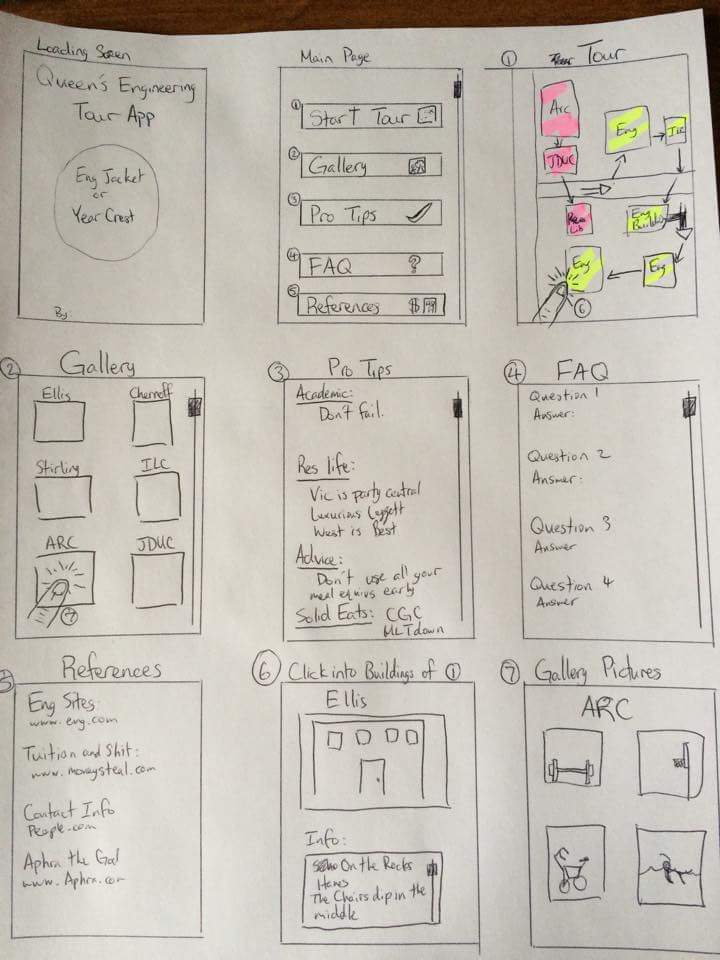 Loading Screen
Queen's Engineering
Tour App
Eng Jacket
or
Year Crest
By:
Main Page
① Start Tour
② Gallery
③ Pro Tips
④ FAQ ?
⑤ References $ 99
① Tour
Arc
JDUC
Lib
Eng
ILC
Eng
Building
Eng
Eng
⑥
② Gallery
Ellis
Chernoff
Stirling
ILC
ARC
JDUC
⑦
③ Pro Tips
Academic:
Don't fail.
Res life:
Vic is party central
Luxurious Leggett
West is Best
Advice:
Don't use all your
meal equivs early
Solid Eats: CGC
MLTdown
④ FAQ
Question 1
Answer:
Question 2
Answer:
Question 3
Answer
Question 4
Answer
5 References
Eng Sites:
www.eng.com
Tuition and Shit:
www.moneysteal.com
Contact Info
People.com
Aphra the Goal
www.Aphra.com
⑥ Click into Buildings of ①
Ellis
Info:
On the Rocks
Hanes
The Chairs dip in the
middle
⑦ Gallery Pictures
ARC